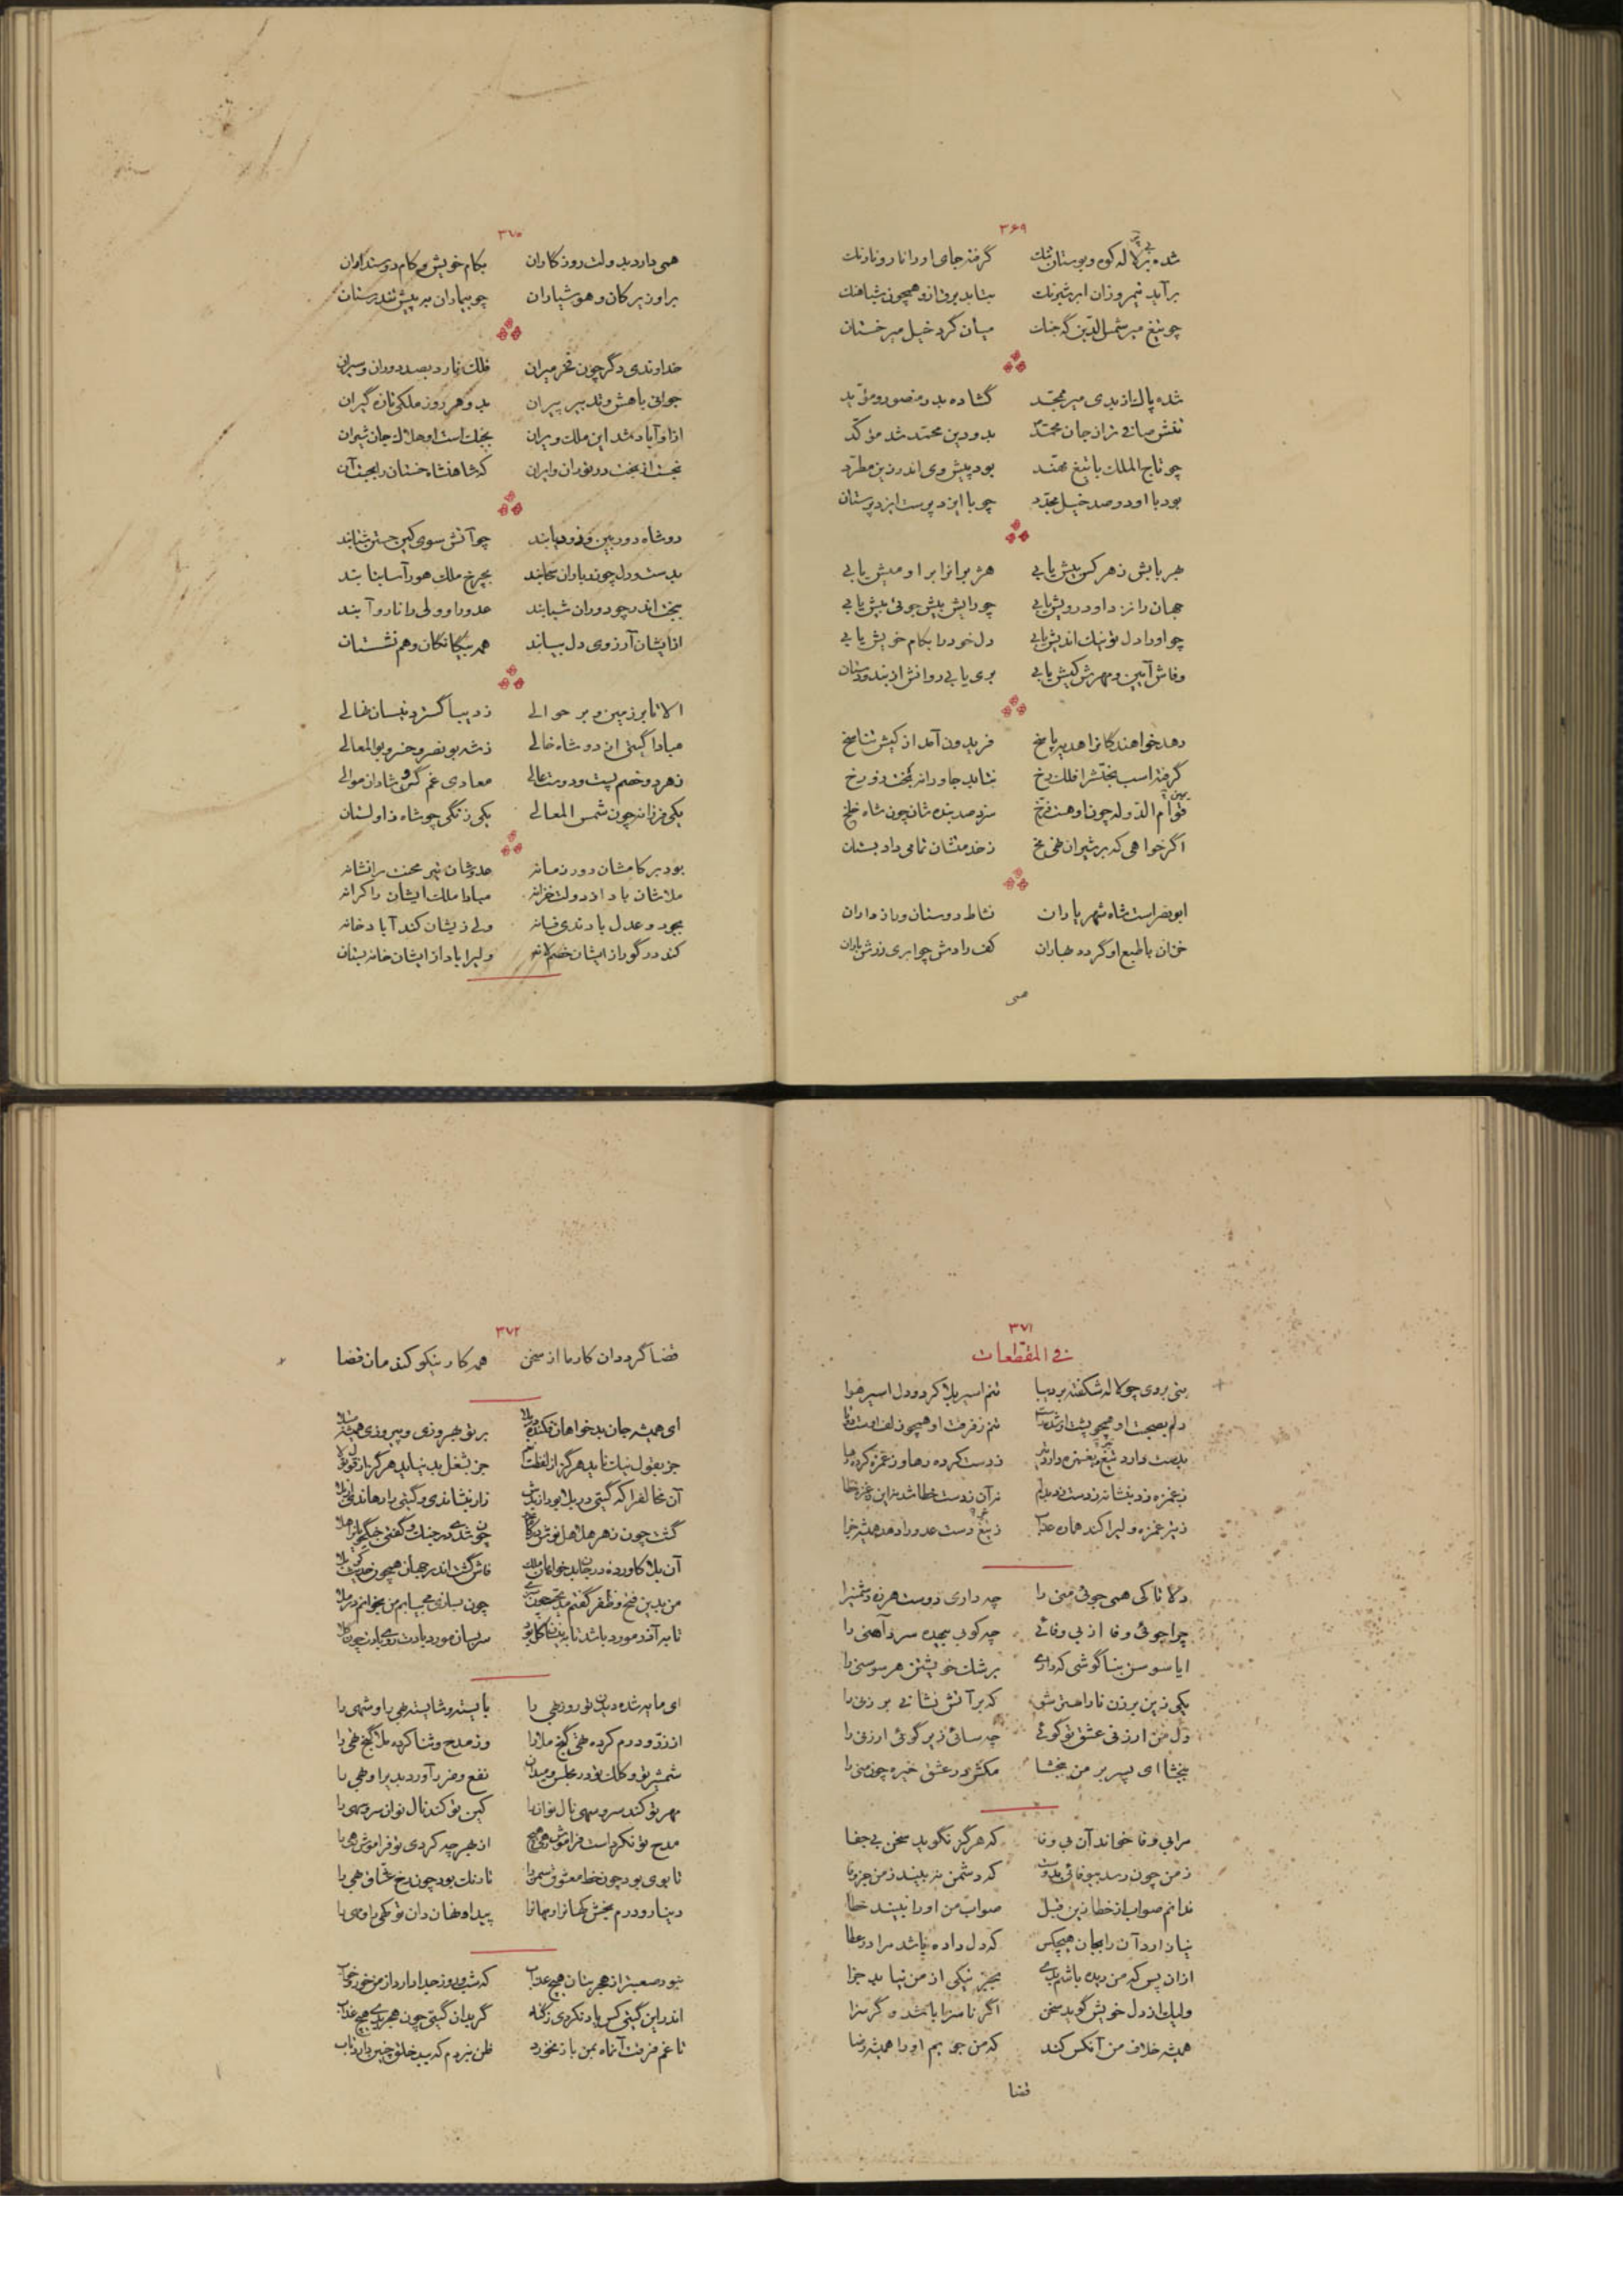 ۳۶۹
شده پر لاله کوه و بوستان تنک گرفته جای او را نار و نارنک
برآید نیمروزان ابر شبرنک بتابد برق ازو همچون شباهنک
چو تیغ میر شمس الدین گه جنک میان کرد خیل میر خستان
شده پاک از بدی میر ممجد گشاده بد و منصور و مؤید
نفس صافی تر از جان محمد بدو دین محمد شد مؤکد
چو تاج الملک با تیغ مهند بود پیش وی اندر زین مطرد
بود با او دو صد خیل مجدد چو با ایزد پرست ایزد پرستان
هنر یابش ز هر کس بیش یابی هژبرانرا بر او میش یابی
جهان را نزد او درویش یابی چو رایش بیش جوئی بیش یابی
چو او را دل تو نیک اندیش یابی دل خود را بکام خویش یابی
وفاش آیین و مهرش کیش یابی بری یابی روانش از بند و دستان
دهد خواهندکانرا هدیه پاسخ فریدون آمد از کیش تناسخ
گرفته اسب بختش را فلک رخ نتابد جاودانه بخت زو رخ
قوام الدوله چون او هست فرخ سزد صد بنده شان چون شاه خلخ
اگر خواهی که بر شیران نهی فخ ز خدمتشان تمامی داد بستان
ابونصر است شاه شهریاران نشاط دوستان و راز داران
خزان با طبع او گردد بهاران کف رادش چو ابری زرش باران
همی
۳۷۰
همی دارد بدولت روزکاران بکام خویش و کام دوستداران
بر او زیرکان و هوشیاران چو بیماران به پیش تندرستان
خداوندی دگر چون فخر میران فلک نارد بصد دوران و سیران
جوانی با هش و تدبیر پیران بدو هر روز ملکی تازه گیران
ازو آباد شد این ملک ویران بجنک است او هلاک جان شیران
بجست از بخت در توران و ایران که شاهنشاه خستان را بجست آن
دو شاه دوربین و زود یابند چو آتش سوی کین جستن شتابند
بدست و دل چو دریا و سحابند بچرخ ملک هور آسا بتابند
ببخت اندر چو دوران شبابند عدو را و ولی را نار و آبند
از ایشان آرزوی دل بیابند همه بیگانکان و هم نشستان
الا تا بر زمین و بر حوالی ز دیبا گسترد نیسان نهالی
مبادا گیتی از دو شاه خالی ز شه بونصر و خسرو بوالمعالی
ز هر دو خصم پست و دوست عالی معادی غم گن و شادان موالی
یکی فرزانه چون شمس المعالی یکی زنگی چو شاه زاولستان
بود بر کامشان دور زمانه عدوشان تیر محنت را نشانه
ملاشان باد از دولت خزانه مبادا ملک ایشان را کرانه
بجود و عدل بادندی فسانه ولی زیشان کند آباد خانه
کند در گور از ایشان خصم لانه ولی را باد از ایشان خانه بستان
۳۷۱
فی المقطعات
بتی بروی چو لاله شکفته بر دیبا تنم اسیر بلا کرد و دل اسیر هوا
دلم بصحبت او همچو پشت او شد راست تنم ز فرقت او همچو زلف اوست دوتا
بدست دارد تیغ و بغمزه دارد تیر ز دست کرده رها و ز غمزه کرده رها
ز غمزه زد بنشانه ز دست زد بدلم نه آن ز دست خطا شد نه این ز غمزه خطا
ز تیر غمزه ولی را کند همان عذاب ز تیغ دست عدو را دهد همیشه جزا
دلا تا کی همی جوئی منی را چه داری دوست هرزه دشمنی را
چرا جوئی وفا از بی وفائی چه کوبی بیهده سرد آهنی را
ایا سوسن بناگوشی که داری برشک خویشتن هر سوسنی را
یکی زین برزن ناراهتر شو که بر آتش نشانی برزنی را
دل من ارزنی عشق تو کوئی چه سائی زیر کوئی ارزنی را
ببخشا ای پسر بر من ببخشا مکش در عشق خیره چون منی را
مرا بی وفا خواند آن بی وفا که هرگز نگوید سخن بی جفا
ز من چون رسد بیوفائی بدوست که دشمن نه بیند ز من جز وفا
ندانم صواب از خطا زین قبل صواب من او را نبیند خطا
نیازارد آن را بجان هیچکس که دل داده باشد مر او را عطا
ازان پس که من دیده باشم بدی بجز نیکی از من نیابد جزا
ولیک از دل خویش گوید سخن اگر ناسزا باشد و گر سزا
همیشه خلاف من آنکس کند که من جویم او را همیشه رضا
قضا
۳۷۲
قضا گرددان کار ما از سخن همه کار نیکو کند مان قضا
ای همیشه جان بدخواهان فکنده در بلا بر تو بهروزی و پیروزی همیشه مبتلا
جز بقول نیک ناید هرگز از لفظت جز بشغل بد نیاید هرگز از تو
آن مخالف را که گیتی در بلا بود
گشت چون زهر هلاهل نوش
آن بلا کاورده فاش گشت اندر جهان همچون
من بدین فتح و ظفر گفتم چون بسازی مجلسی بر من بخوانم در ملا
تا به آذر مورد باشد
ای مایه شده دین تو روز بهی را بایسته و شایسته مهی را و شهی را
از زر و درم کرده تهی گنج ملا را وز مدح و ثنا کرده ملا گنج تهی را
شمشیر تو و کلک تو در مجلس و میدان نفع و ضرر آورد بدی را و بهی را
مهر تو کند سرو سهی نال نوان را کین تو کند نال نوان سرو سهی را
مدح تو نکرد است فراموش رهی هیچ از بهر چه کردی تو فراموش رهی را
تا بوی بود چون خط معشوق سمن را تا رنک بود چون رخ عشاق بهی را
دینار و درم بخش کهانرا و مهانرا پیدا و نهان دان تو یکی را و دهی را
نبود صعبتر از هجر بتان هیچ عذاب که شب و روز جدا دارد از من خور و خواب
اندر این گیتی کس یاد نکردی ز گنه گر بدان گیتی چون هجر بدی هیچ عذاب
تا غم فرقت آن ماه بمن باز نخورد ظن نبردم که بود خلق چنین